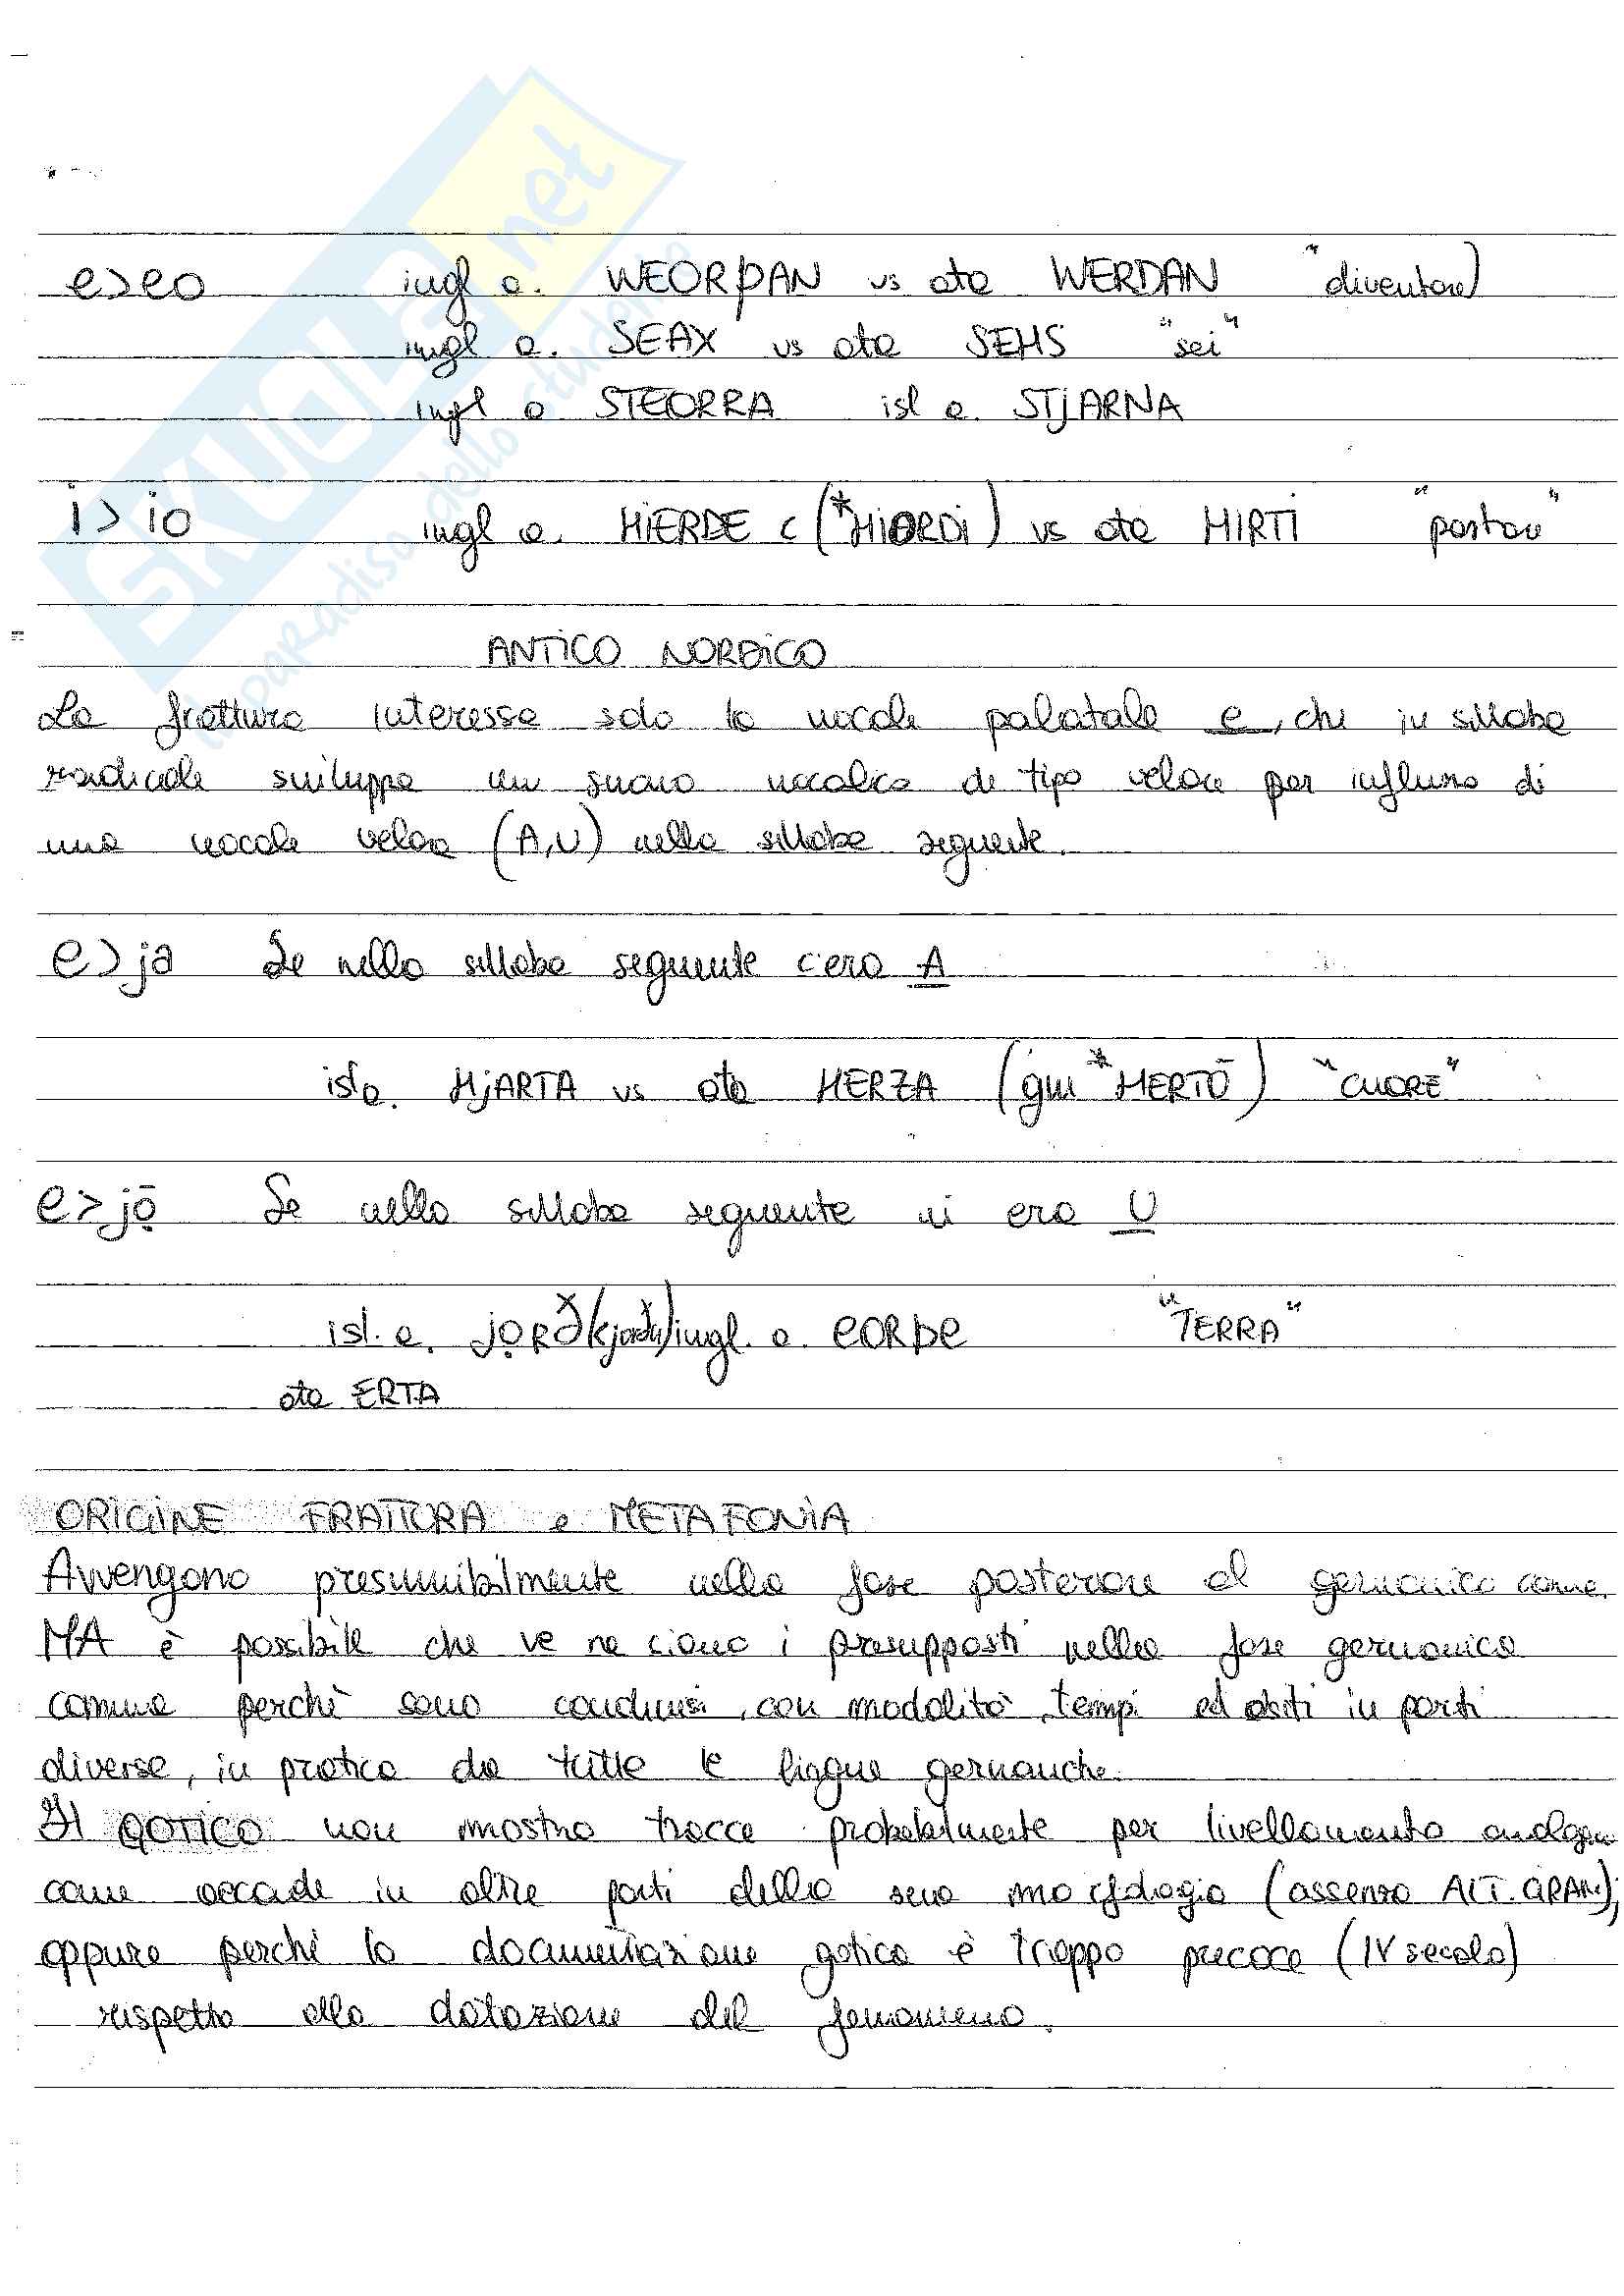 SKUOLA.net
il paradiso dello studente
e>eo ingl a. WEORÞAN vs ata WERDAN "diventare"
ingl a. SEAX vs ata SEHS "sei"
ingl a STEORRA isl a. STJARNA
i>io ingl a. HIERDE < (*HIORDI) vs ata HIRTI "pastore"
ANTICO NORDICO
La frattura interessa solo la vocale palatale e, che in sillaba
radicale sviluppa un suono vocalico di tipo velare per influsso di
una vocale velare (A,U) nella sillaba seguente.
e>ja Se nella sillaba seguente c'era A
isl a. HJARTA vs ata HERZA (gm *HERTŌ) "CUORE"
e>jǭ Se nella sillaba seguente vi era U
isl. a. JǪRÐ ingl. a. EORÞE "TERRA"
ata ERTA
ORIGINE FRATTURA e METAFONIA
Avvengono presumibilmente nella fase posteriore al germanico come.
MA è possibile che ve ne siano i presupposti nella fase germanica
comune perchè sono condivisi, con modalità, tempi ed esiti in parti
diverse, in pratica da tutte le lingue germaniche.
Il GOTICO non mostra tracce probabilmente per livellamento analogico
come accade in altre parti della sua morfologia (assenza ALT. GRAM.),
oppure perché la documentazione gotica è troppo precoce (IV secolo)
rispetto alla datazione del fenomeno.